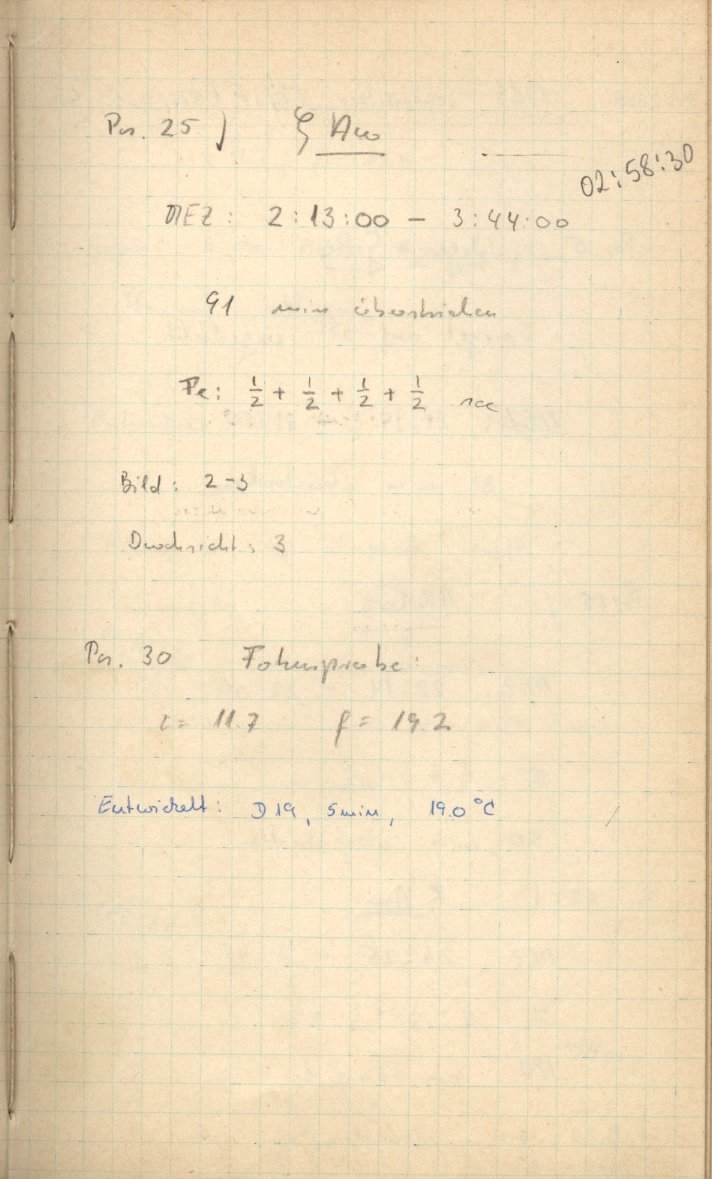 Pos. 25) ζ Aur
02:58:30
MEZ: 2:13:00 – 3:44:00
91 min überstrichen
Fe: 1/2 + 1/2 + 1/2 + 1/2 sec
Bild: 2-3
Durchsicht: 3
Pos. 30 Fokusprobe:
c = 11.7 f = 19.2
Entwickelt: D19, 5min, 19.0°C